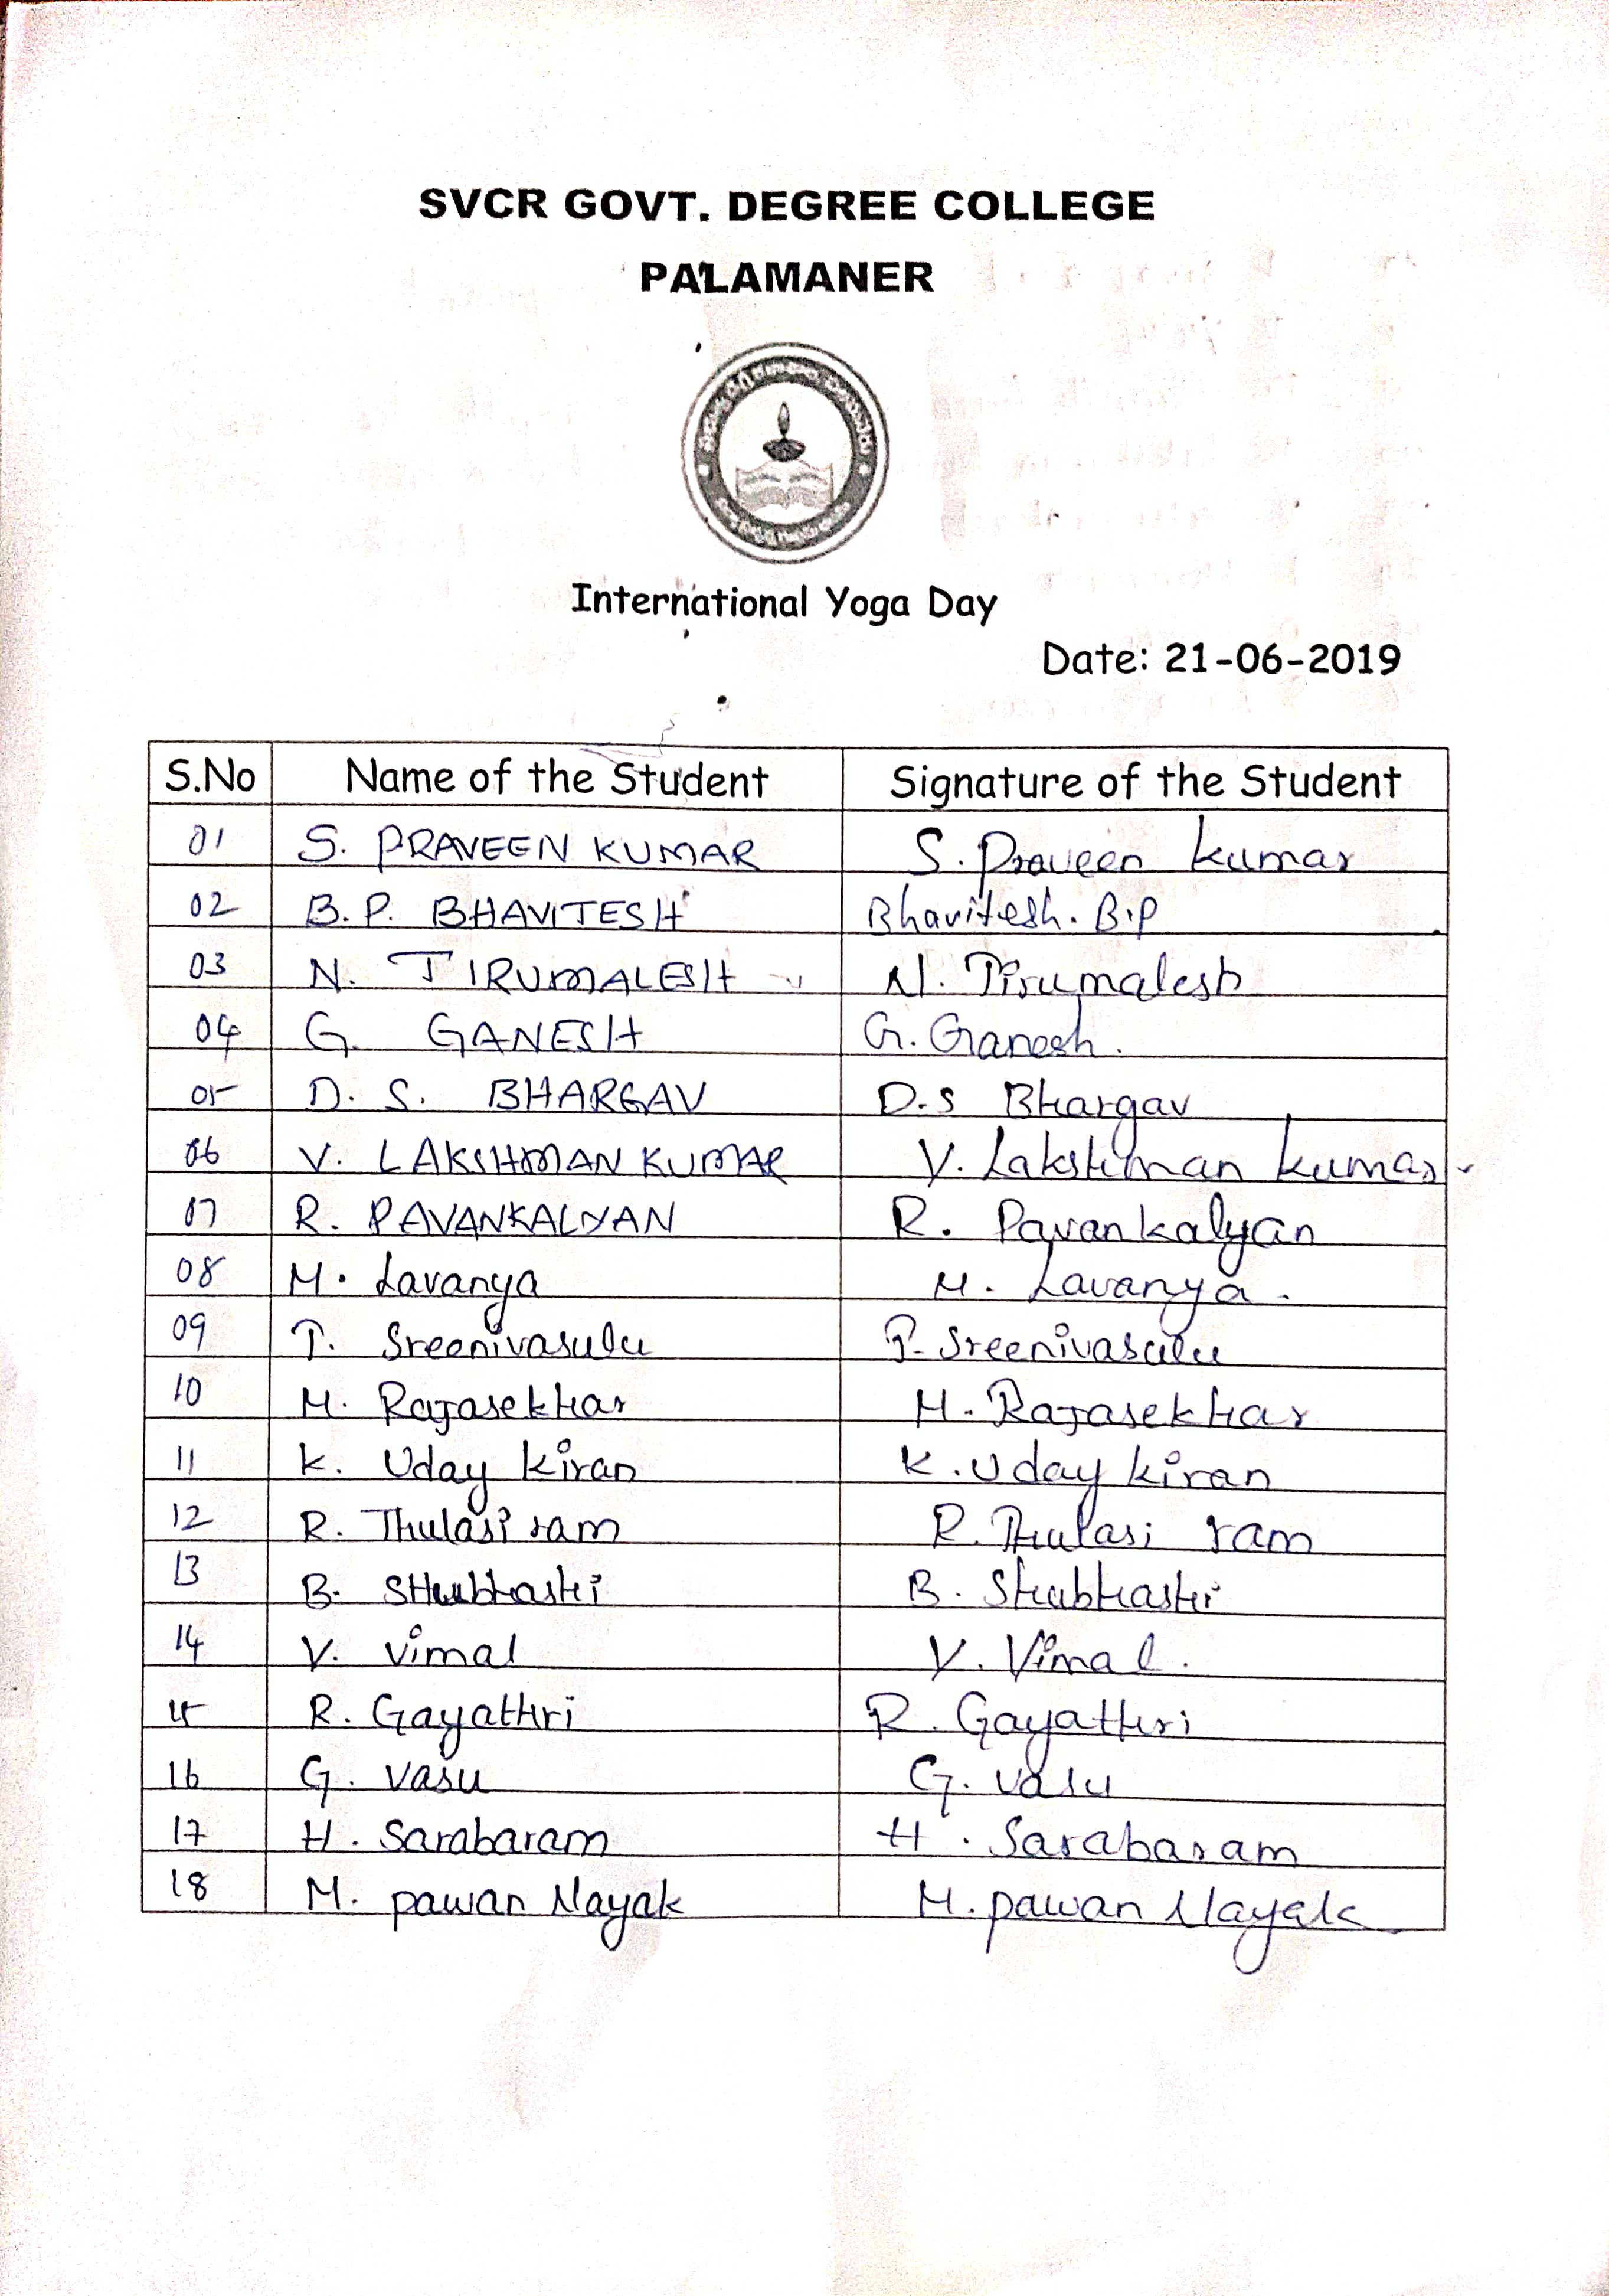 SVCR GOVT. DEGREE COLLEGE
PALAMANER
International Yoga Day
Date: 21-06-2019
S.No Name of the Student Signature of the Student
01 S. PRAVEEN KUMAR S. Praveen kumar
02 B.P. BHAVITESH Bhavitesh. B.P
03 N. TIRUMALESH N. Tirumalesh
04 G. GANESH G. Ganesh.
05 D. S. BHARGAV D.s Bhargav
06 V. LAKSHMAN KUMAR V. Lakshman kumar
07 R. PAVANKALYAN R. Pavankalyan
08 M. Lavanya M. Lavanya.
09 T. Sreenivasulu T. Sreenivasulu
10 M. Rajasekhar M. Rajasekhar
11 K. Uday kiran K. Uday kiran
12 R. Thulasi ram R. Thulasi ram
13 B. SHubhashi B. Shubhashi
14 V. Vimal V. Vimal.
15 R. Gayathri R. Gayathri
16 G. Vasu G. Vasu
17 H. Sarabaram H. Sarabaram
18 M. pawan Nayak M. pawan Nayak